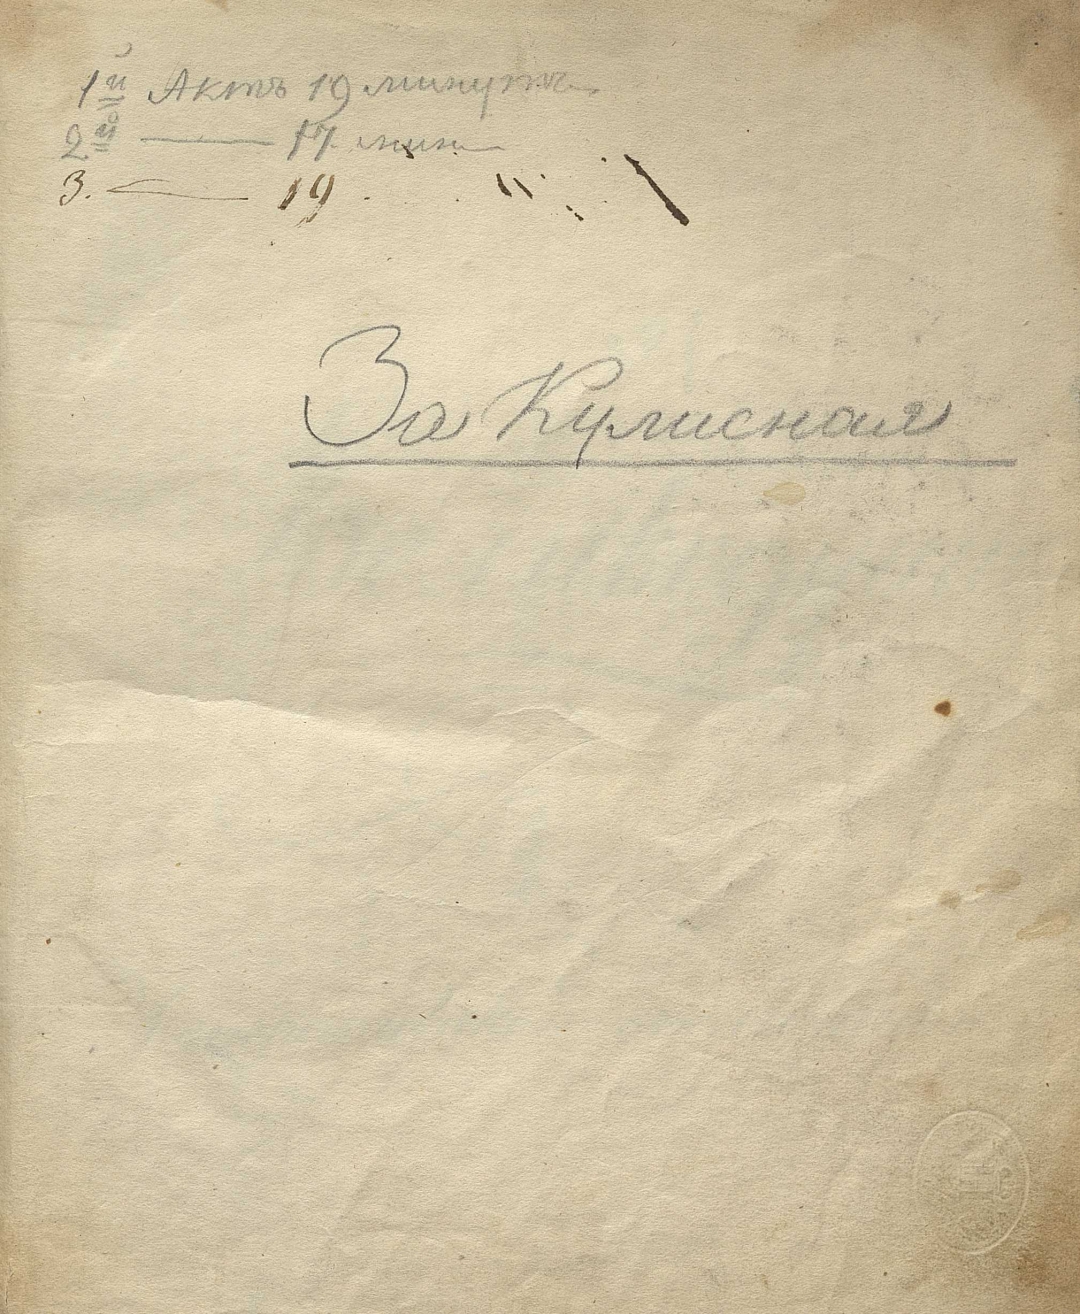 1й Актъ 19 минутъ
2й — 17 мин
3. — 19 "
За Кулисная